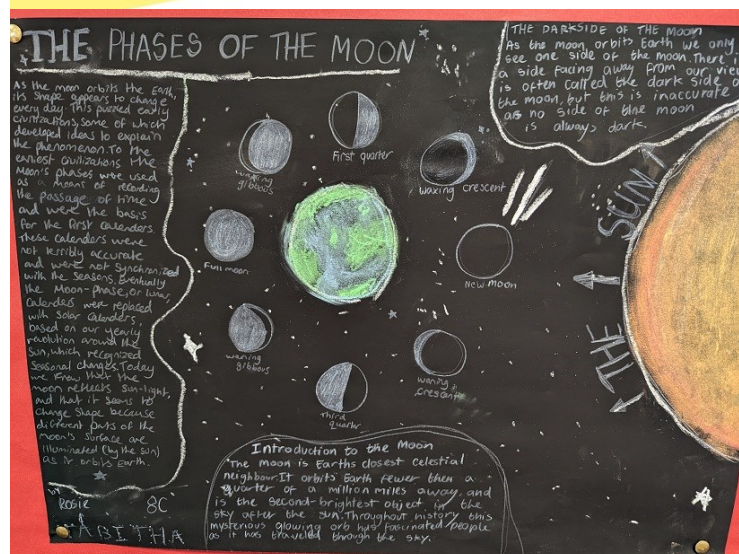 THE PHASES OF THE MOON
As the moon orbits the Earth,
it's shape appears to change
every day. This puzzled early
civilizations, some of which
developed ideas to explain
the phenomenon. To the
earliest civilizations the
Moon's phases were used
as a means of recording
the passage of time
and were the basis
for the first calenders.
These calenders were
not terribly accurate
and were not synchronized
with the seasons. Eventually
the Moon-phase, or lunar,
Calenders were replaced
with Solar Calenders,
based on our yearly
revolution around the
Sun, which recognized
seasonal changes. Today
we know that the
moon reflects sun-light,
and that it seems to
change shape because
different parts of the
moon's surface are
illuminated (by the sun)
as it orbits Earth.
by
Rosie 8C
TABITHA
THE DARKSIDE OF THE MOON
As the moon orbits Earth we only
see one side of the moon. There i
a side facing away from our view
is often called the dark side o
the moon, but this is inaccurate
as no side of the moon
is always dark.
First quarter
waxing
gibbous
Waxing crescent
Full moon
New moon
waning
gibbous
waning
crescent
Third
quarter
THE SUN
Introduction to the Moon
The moon is Earths closest celestial
neighbour. It orbits Earth fewer then a
quarter of a million miles away, and
is the second-brightest object in the
sky after the sun. Throughout history this
mysterious glowing orb has fascinated people
as it has traveled through the sky.